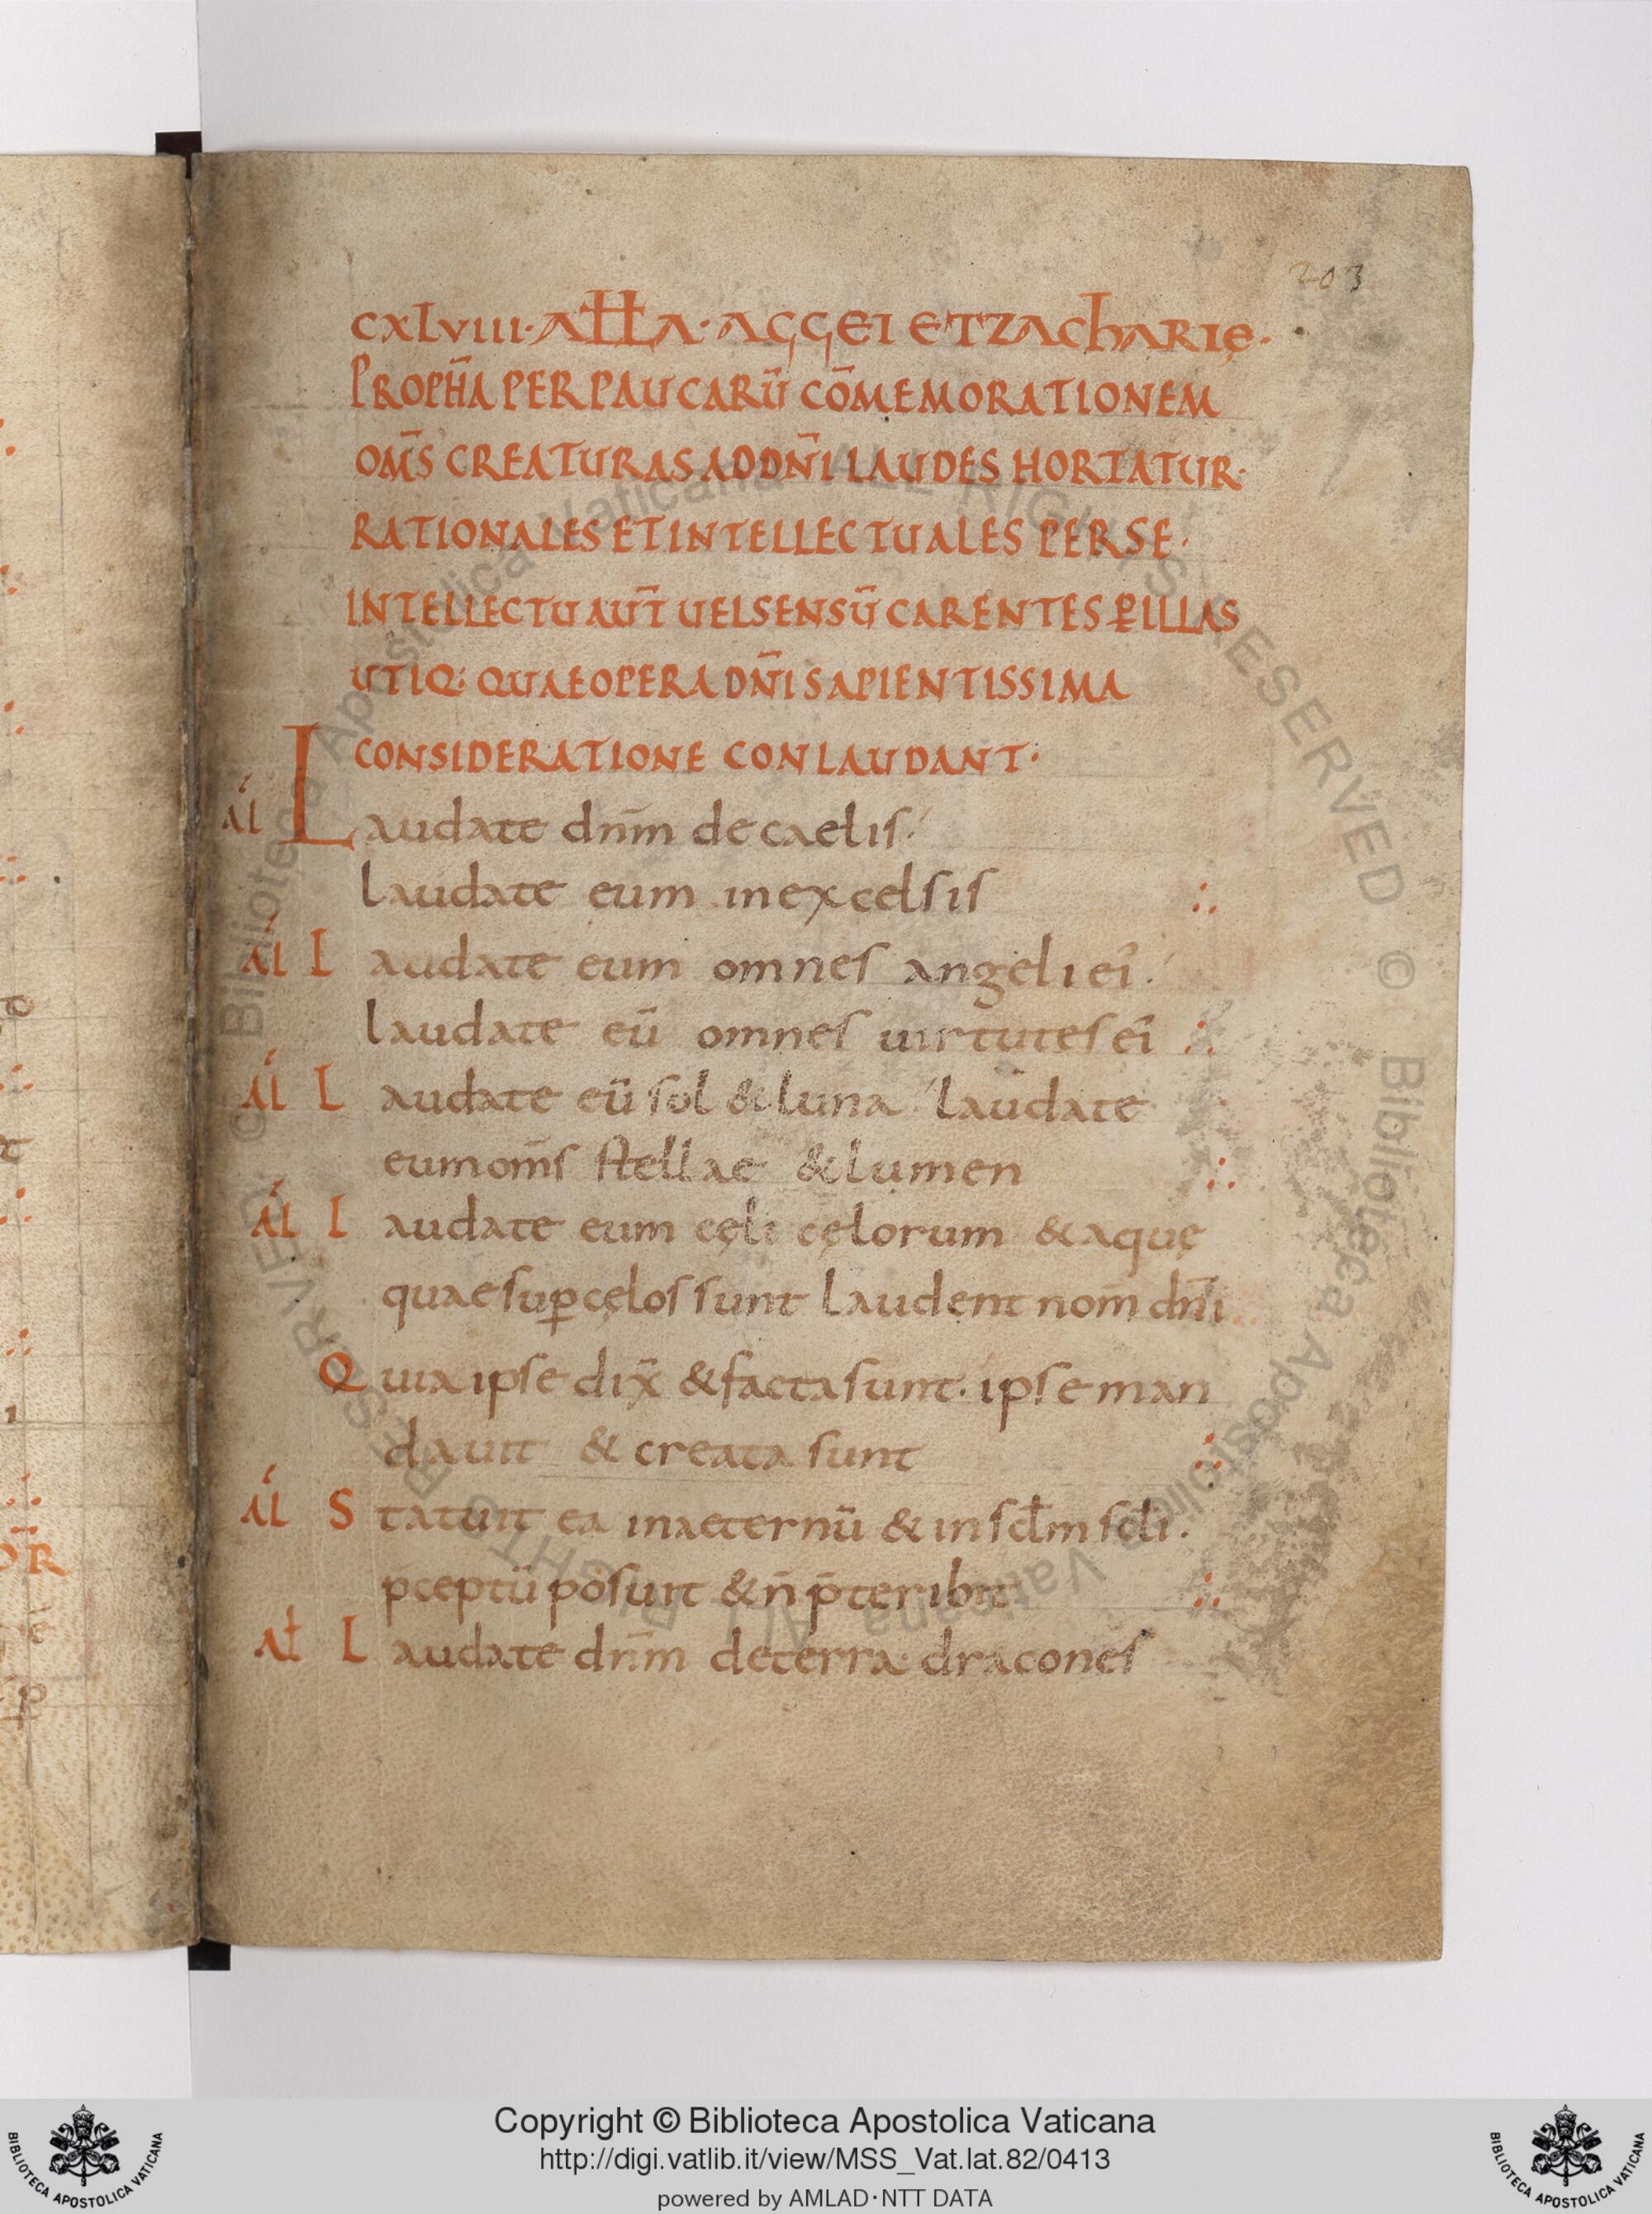 203
CXLVIII· AĦĦA· AGGEI ET ZAChARIĘ·
PROPH̄A PER PAUCARŪ CŌMEMORATIONEM
OM̄S CREATURAS AD DN̄I LAUDES HORTATUR·
RATIONALES ET INTELLECTUALES PER SE·
INTELLECTU AUT̄ UEL SENSŪ CARENTES ꝐILLAS
UTIQ: QUAE OPERA DN̄I SAPIENTISSIMA
CONSIDERATIONE CONLAUDANT·
al Laudate dn̄m de caelis·
laudate eum in excelsis ∴
al Laudate eum omnes angeli ei·
laudate eū omnes uirtutes ei ∴
al Laudate eū sol & luna laudate
eum om̄s stellae & lumen ∴
al Laudate eum cęli cęlorum & aquę
quae suꝑ cęlos sunt laudent nom̄ dn̄i
Quia ipse dix̄ & facta sunt· ipse man
dauit & creata sunt ∴
al Statuit ea in aeternū & in scl̄m scl̄i·
p̄ceptū posuit & n̄ p̄teribit ∴
aƚ Laudate dn̄m de terra· dracones
Copyright © Biblioteca Apostolica Vaticana
http://digi.vatlib.it/view/MSS_Vat.lat.82/0413
powered by AMLAD·NTT DATA
BIBLIOTECA APOSTOLICA VATICANA
BIBLIOTECA APOSTOLICA VATICANA